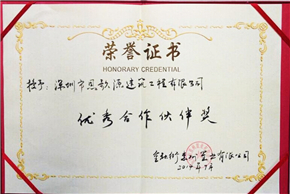 荣誉证书
HONORARY CREDENTIAL
授予：深圳市恩歌源建筑工程有限公司
优秀合作伙伴奖
有限公司
2014年7月